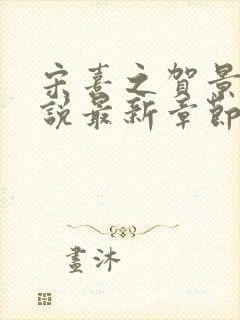 宋喜之贺景
說最新章節
畫沐